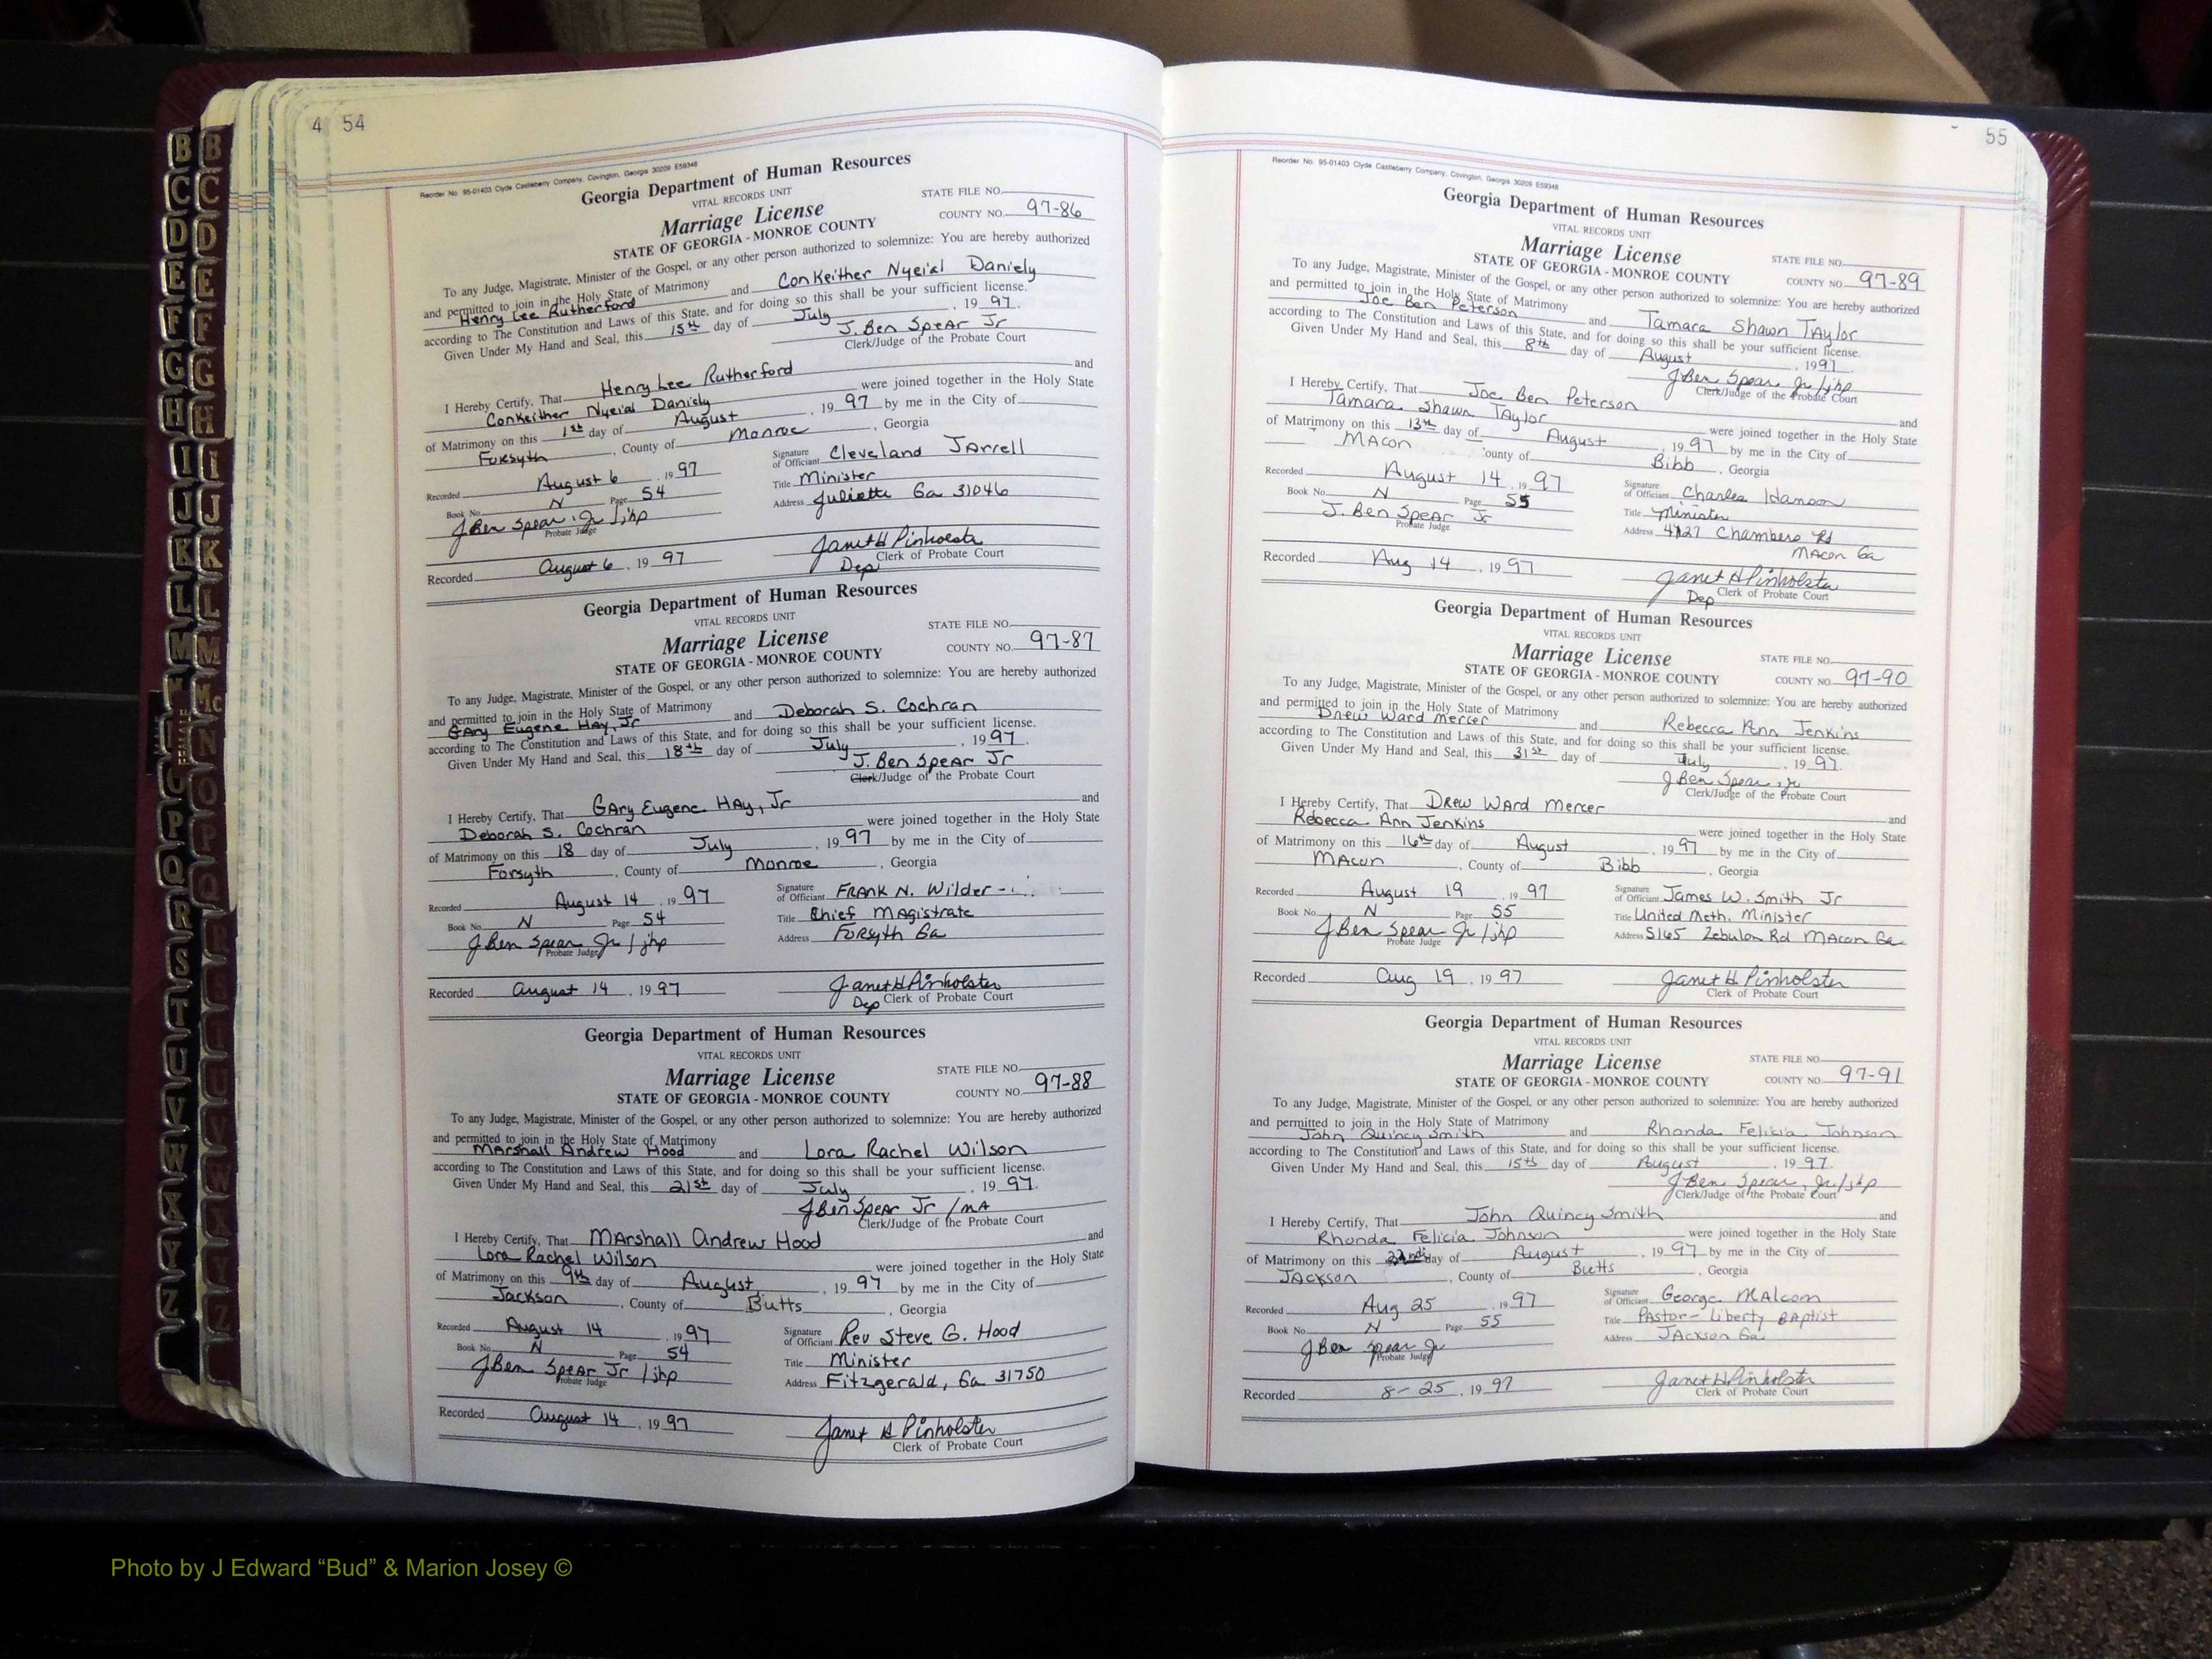 4 54
Reorder No. 95-01403 Clyde Castleberry Company, Covington, Georgia 30209 E59348
Georgia Department of Human Resources
VITAL RECORDS UNIT
STATE FILE NO.
Marriage License
COUNTY NO. 97-86
STATE OF GEORGIA - MONROE COUNTY
To any Judge, Magistrate, Minister of the Gospel, or any other person authorized to solemnize: You are hereby authorized
and permitted to join in the Holy State of Matrimony
Henry Lee Rutherford and ConKeither Nyeial Daniely
according to The Constitution and Laws of this State, and for doing so this shall be your sufficient license.
Given Under My Hand and Seal, this 15th day of July, 1997.
J. Ben Spear Jr
Clerk/Judge of the Probate Court
I Hereby Certify, That Henry Lee Rutherford and
Conkeither Nyeial Daniely were joined together in the Holy State
of Matrimony on this 1st day of August, 1997 by me in the City of
Forsyth, County of Monroe, Georgia
Recorded August 6, 1997
Signature of Officiant Cleveland Jarrell
Book No. N Page 54
Title Minister
J Ben Spear Jr / jhp
Probate Judge
Address Juliette Ga 31046
Recorded August 6, 1997
Janet H Pinholster
Dep Clerk of Probate Court
Georgia Department of Human Resources
VITAL RECORDS UNIT
STATE FILE NO.
Marriage License
COUNTY NO. 97-87
STATE OF GEORGIA - MONROE COUNTY
To any Judge, Magistrate, Minister of the Gospel, or any other person authorized to solemnize: You are hereby authorized
and permitted to join in the Holy State of Matrimony
Gary Eugene Hay, Jr and Deborah S. Cochran
according to The Constitution and Laws of this State, and for doing so this shall be your sufficient license.
Given Under My Hand and Seal, this 18th day of July, 1997.
J. Ben Spear Jr
Clerk/Judge of the Probate Court
I Hereby Certify, That Gary Eugene Hay, Jr and
Deborah S. Cochran were joined together in the Holy State
of Matrimony on this 18 day of July, 1997 by me in the City of
Forsyth, County of Monroe, Georgia
Recorded August 14, 1997
Signature of Officiant Frank N. Wilder
Book No. N Page 54
Title Chief Magistrate
J Ben Spear Jr / jhp
Probate Judge
Address Forsyth Ga
Recorded August 14, 1997
Janet H Pinholster
Dep Clerk of Probate Court
Georgia Department of Human Resources
VITAL RECORDS UNIT
STATE FILE NO.
Marriage License
COUNTY NO. 97-88
STATE OF GEORGIA - MONROE COUNTY
To any Judge, Magistrate, Minister of the Gospel, or any other person authorized to solemnize: You are hereby authorized
and permitted to join in the Holy State of Matrimony
Marshall Andrew Hood and Lora Rachel Wilson
according to The Constitution and Laws of this State, and for doing so this shall be your sufficient license.
Given Under My Hand and Seal, this 21st day of July, 1997.
J Ben Spear Jr / mA
Clerk/Judge of the Probate Court
I Hereby Certify, That Marshall Andrew Hood and
Lora Rachel Wilson were joined together in the Holy State
of Matrimony on this 9th day of August, 1997 by me in the City of
Jackson, County of Butts, Georgia
Recorded August 14 1997
Signature of Officiant Rev Steve G. Hood
Book No. N Page 54
Title Minister
J Ben Spear Jr / jhp
Probate Judge
Address Fitzgerald, Ga 31750
Recorded August 14, 1997
Janet H Pinholster
Clerk of Probate Court
55
Reorder No. 95-01403 Clyde Castleberry Company, Covington, Georgia 30209 E59348
Georgia Department of Human Resources
VITAL RECORDS UNIT
Marriage License
STATE FILE NO.
STATE OF GEORGIA - MONROE COUNTY
COUNTY NO. 97-89
To any Judge, Magistrate, Minister of the Gospel, or any other person authorized to solemnize: You are hereby authorized
and permitted to join in the Holy State of Matrimony
Joe Ben Peterson and Tamara Shawn Taylor
according to The Constitution and Laws of this State, and for doing so this shall be your sufficient license.
Given Under My Hand and Seal, this 8th day of August, 1997.
J Ben Spear Jr / jhp
Clerk/Judge of the Probate Court
I Hereby Certify, That Joe Ben Peterson and
Tamara Shawn Taylor were joined together in the Holy State
of Matrimony on this 13th day of August, 1997 by me in the City of
Macon County of Bibb, Georgia
Recorded August 14, 1997
Signature of Officiant Charles
Book No. N Page 55
Title Minister
J. Ben Spear Jr
Probate Judge
Address 4127 Chambers Rd
Macon Ga
Recorded Aug 14, 1997
Janet H Pinholster
Dep Clerk of Probate Court
Georgia Department of Human Resources
VITAL RECORDS UNIT
Marriage License
STATE FILE NO.
STATE OF GEORGIA - MONROE COUNTY
COUNTY NO. 97-90
To any Judge, Magistrate, Minister of the Gospel, or any other person authorized to solemnize: You are hereby authorized
and permitted to join in the Holy State of Matrimony
Drew Ward Mercer and Rebecca Ann Jenkins
according to The Constitution and Laws of this State, and for doing so this shall be your sufficient license.
Given Under My Hand and Seal, this 31st day of July, 1997.
J Ben Spear, Jr
Clerk/Judge of the Probate Court
I Hereby Certify, That Drew Ward Mercer and
Rebecca Ann Jenkins were joined together in the Holy State
of Matrimony on this 16th day of August, 1997 by me in the City of
Macon, County of Bibb, Georgia
Recorded August 19, 1997
Signature of Officiant James W. Smith Jr
Book No. N Page 55
Title United Meth. Minister
J Ben Spear Jr / jhp
Probate Judge
Address 5165 Zebulon Rd Macon Ga
Recorded Aug 19, 1997
Janet H Pinholster
Clerk of Probate Court
Georgia Department of Human Resources
VITAL RECORDS UNIT
Marriage License
STATE FILE NO.
STATE OF GEORGIA - MONROE COUNTY
COUNTY NO. 97-91
To any Judge, Magistrate, Minister of the Gospel, or any other person authorized to solemnize: You are hereby authorized
and permitted to join in the Holy State of Matrimony
John Quincy Smith and Rhonda Felicia Johnson
according to The Constitution and Laws of this State, and for doing so this shall be your sufficient license.
Given Under My Hand and Seal, this 15th day of August, 1997.
J Ben Spear, Jr / jhp
Clerk/Judge of the Probate Court
I Hereby Certify, That John Quincy Smith and
Rhonda Felicia Johnson were joined together in the Holy State
of Matrimony on this 22nd day of August, 1997 by me in the City of
Jackson, County of Butts, Georgia
Recorded Aug 25, 1997
Signature of Officiant George Malcom
Book No. N Page 55
Title Pastor - Liberty Baptist
J Ben Spear Jr
Probate Judge
Address Jackson Ga
Recorded 8-25, 1997
Janet H Pinholster
Clerk of Probate Court
Photo by J Edward “Bud” & Marion Josey ©